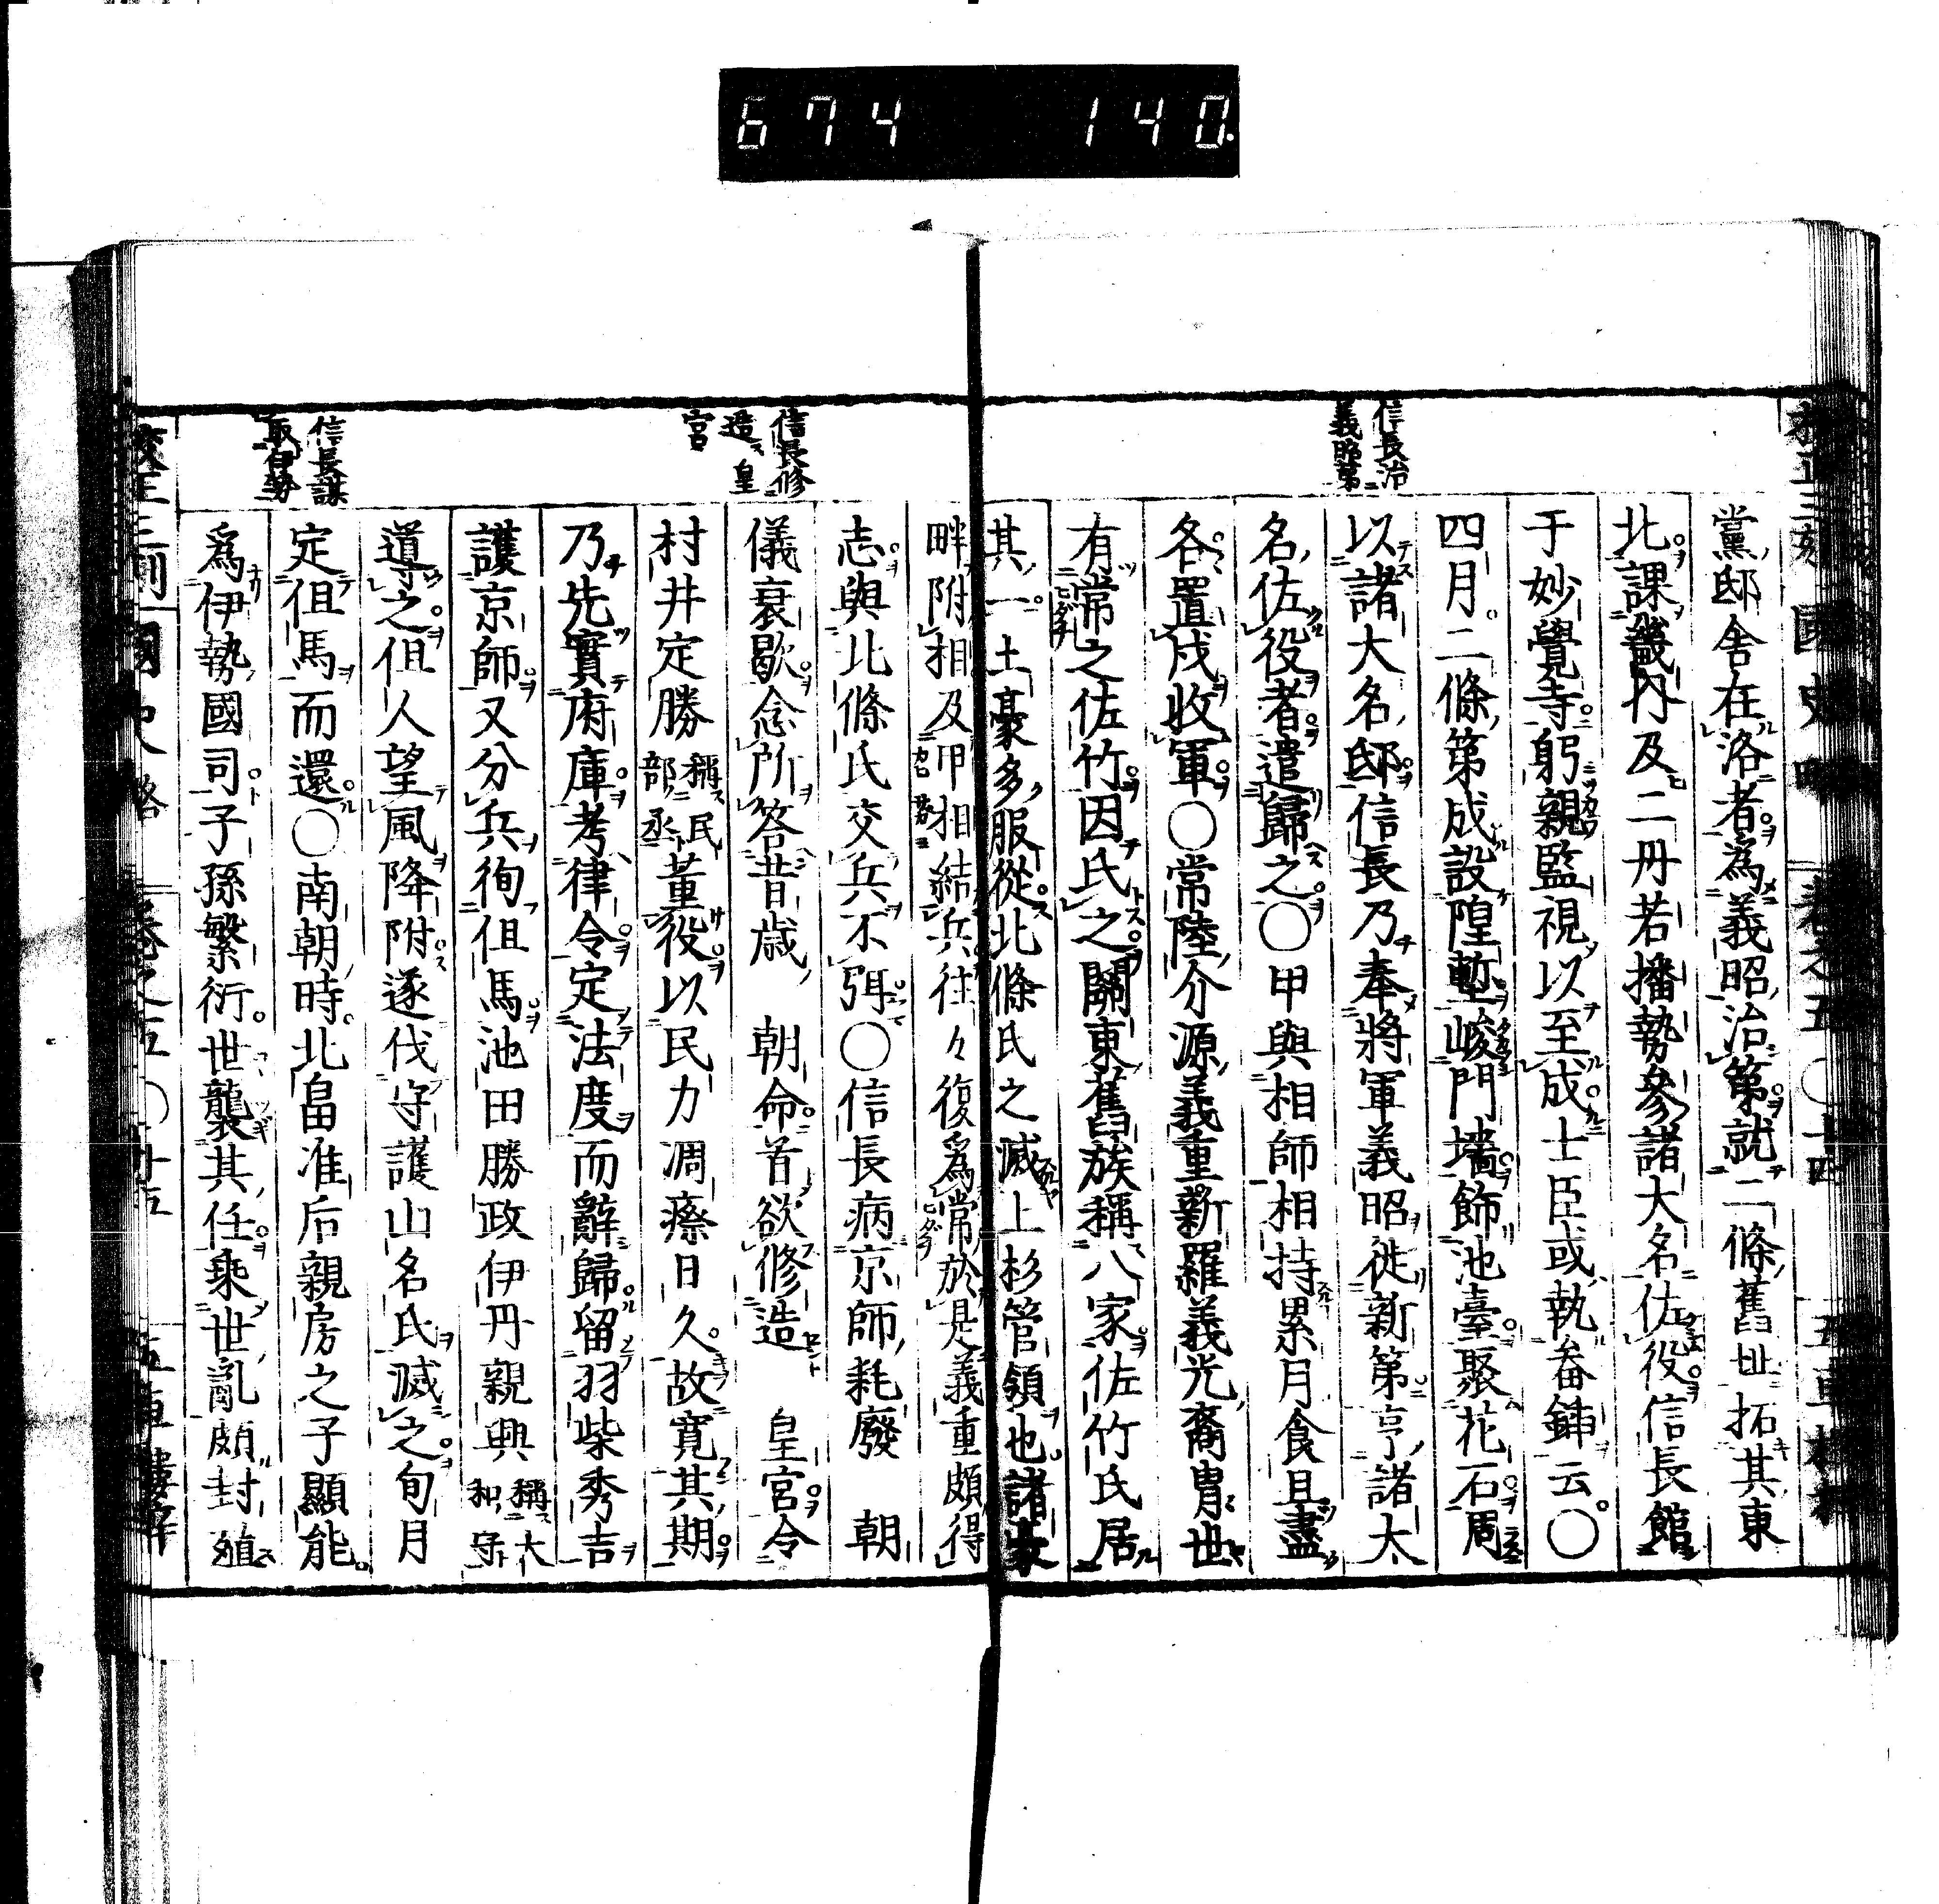 674 140.
信長治
義昭第
黨邸舍在洛者爲義昭治第就二條舊址拓其東
北課畿內及二丹若播勢參諸大名佐役信長館
于妙覺寺躬親監視以至成士臣或執畚鍤云○
四月二條第成設隍塹峻門墻飾池臺聚花石周
以諸大名邸信長乃奉將軍義昭徙新第亨諸大
名佐役者遣歸之○甲與相師相持累月食且盡
各置戍收軍○常陸介源義重新羅義光裔冑世
有常之佐竹因氏之關東舊族稱八家佐竹氏居
其一土豪多服從北條氏之滅上杉管領也諸豪
信長修
造皇
宮
信長謀
取伊勢
畔附相及甲相結兵往々復爲常於是義重頗得
志與北條氏交兵不弭○信長病京師耗廢　朝
儀衰歇念所答昔歲　朝命首欲修造　皇宮令
村井定勝稱民部丞董役以民力凋瘵日久故寬其期
乃先實府庫考律令定法度而辭歸留羽柴秀吉
護京師又分兵徇但馬池田勝政伊丹親興稱大和守
導之但人望風降附遂伐守護山名氏滅之旬月
定但馬而還○南朝時北畠准后親房之子顯能
爲伊勢國司子孫繁衍世襲其任乘世亂頗封殖